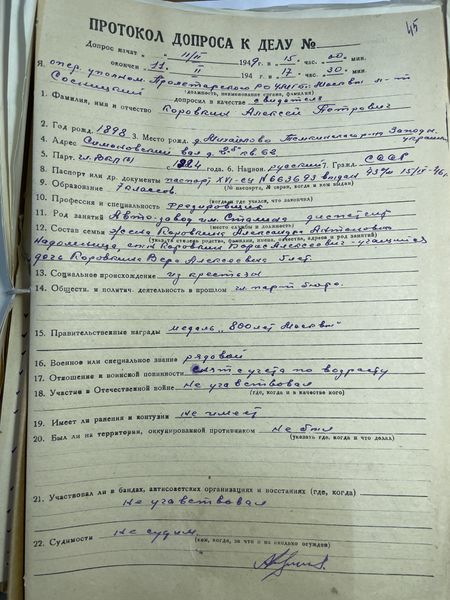 45
ПРОТОКОЛ ДОПРОСА К ДЕЛУ №
Допрос начат „ 11/II 1949 г. в 15 час. 00 мин.
окончен 11. II 194 г. 17 час. 30 мин.
Я, опер. уполном. Пролетарского РО УМГБ г. Москвы л-т
(должность, наименование органа, фамилия)
Сосницкий допросил в качестве свидетеля
1. Фамилия, имя и отчество Коровкин Алексей Петрович
2. Год рожд. 1898 3. Место рожд. д. Михайлово Темкинского р-на Западн.
4. Адрес Симоновский вал д. кв. 62
5. Парт. чл. ВКП(б) года. 6. Национ. русский 7. Гражд. СССР
8. Паспорт или др. документы паспорт XVI-СЦ № 663693 выдан 93 о/м 15/II-46 г.
(№ паспорта, № серии, когда и кем выдан)
9. Образование 7 классов.
(когда и где учился, что закончил)
10. Профессия и специальность Фрезеровщик
11. Род занятий Авто-завод им. Сталина
(место службы и должность)
12. Состав семьи жена Коровкина Александра Антоновна
(укажите степень родства, фамилии, имена, отчества, адреса и род занятий)
Надомница, сын Коровкин Борис Алексеевич - учащийся
дочь Коровкина Вера Алексеевна 5 лет.
13. Социальное происхождение из крестьян
14. Обществ. и политич. деятельность в прошлом чл. парт бюро.
15. Правительственные награды медаль „800 лет Москвы"
16. Военное или специальное звание рядовой
17. Отношение к воинской повинности снят с учета по возрасту
18. Участие в Отечественной войне не участвовал
(где, когда и в качестве кого)
19. Имеет ли ранения и контузии не имеет
20. Был ли на территории, оккупированной противником не был
(указать где, когда и что делал)
21. Участвовал ли в бандах, антисоветских организациях и восстаниях (где, когда)
не участвовал
22. Судимости не судим
(кем, когда, за что и на сколько осужден)